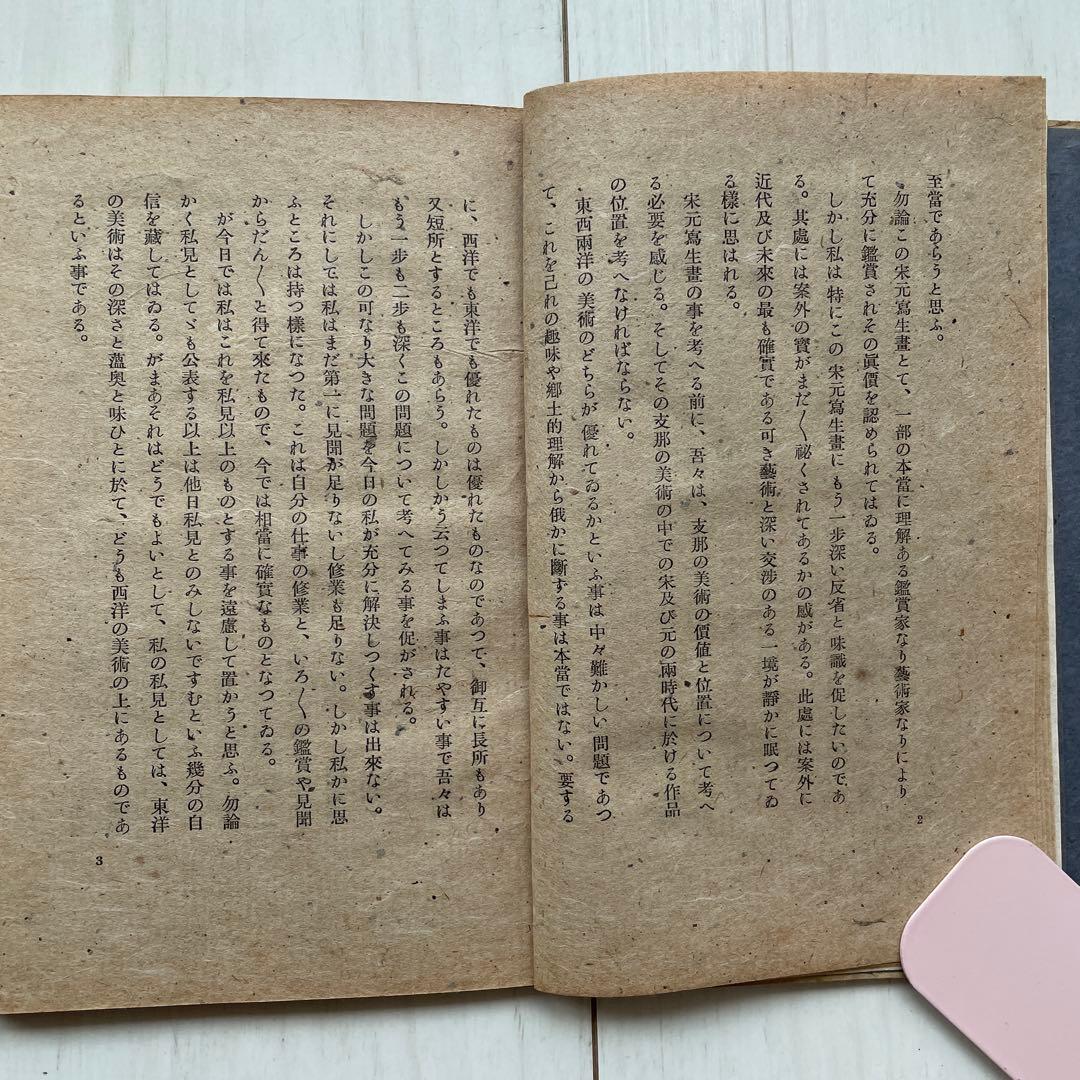 至當であらうと思ふ。
勿論この宋元寫生畫とて、一部の本當に理解ある鑑賞家なり藝術家なりにより
て充分に鑑賞されその眞價を認められてはゐる。
しかし私は特にこの宋元寫生畫にもう一步深い反省と味識を促したいのであ
る。其處には案外の寶がまだ〱祕くされてあるかの感がある。此處には案外に
近代及び未來の最も確實である可き藝術と深い交渉のある一境が靜かに眠つてゐ
る樣に思はれる。
宋元寫生畫の事を考へる前に、吾々は、支那の美術の價値と位置について考へ
る必要を感じる。そしてその支那の美術の中での宋及び元の兩時代に於ける作品
の位置を考へなければならない。
東西兩洋の美術のどちらが優れてゐるかといふ事は中々難かしい問題であつ
て、これを己れの趣味や鄕土的理解から俄かに斷する事は本當ではない。要する
2
に、西洋でも東洋でも優れたものは優れたものなのであつて、御互に長所もあり
又短所とするところもあらう。しかしかう云つてしまふ事はたやすい事で吾々は
もう一步も二步も深くこの問題について考へてみる事を促がされる。
しかしこの可なり大きな問題を今日の私が充分に解決しつくす事は出來ない。
それにしては私はまだ第一に見聞が足りないし修業も足りない。しかし私かに思
ふところは持つ樣になつた。これは自分の仕事の修業と、いろ〱の鑑賞や見聞
からだん〱と得て來たもので、今では相當に確實なものとなつてゐる。
が今日では私はこれを私見以上のものとする事を遠慮して置かうと思ふ。勿論
かく私見としてゞも公表する以上は他日私見とのみしないですむといふ幾分の自
信を藏してはゐる。がまあそれはどうでもよいとして、私の私見としては、東洋
の美術はその深さと薀奥と味ひとに於て、どうも西洋の美術の上にあるものであ
るといふ事である。
3